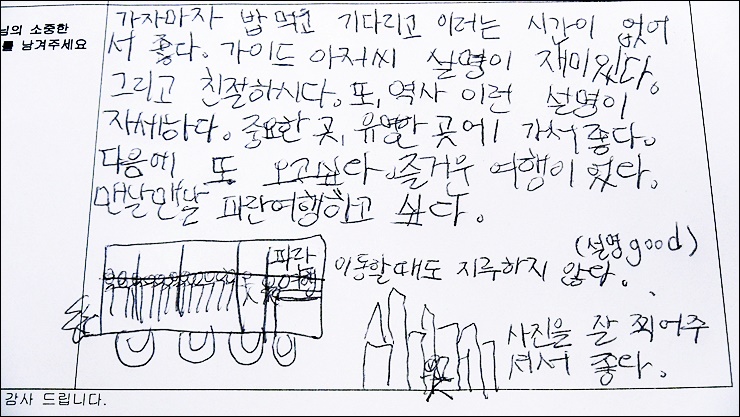 님의 소중한
를 남겨주세요
가자마자 밥 먹고 기다리고 이러는 시간이 없어
서 좋다. 가이드 아저씨 설명이 재미있다.
그리고 친절하시다. 또, 역사 이런 설명이
자세하다. 중요한 곳, 유명한 곳에 가서 좋다.
다음에 또 오고싶다. 즐거운 여행이었다.
맨날맨날 파란여행하고 싶다.
(설명 good)
파란
여행
이동할때도 지루하지 않다.
사진을 잘 찍어주
셔서 좋다.
감사 드립니다.